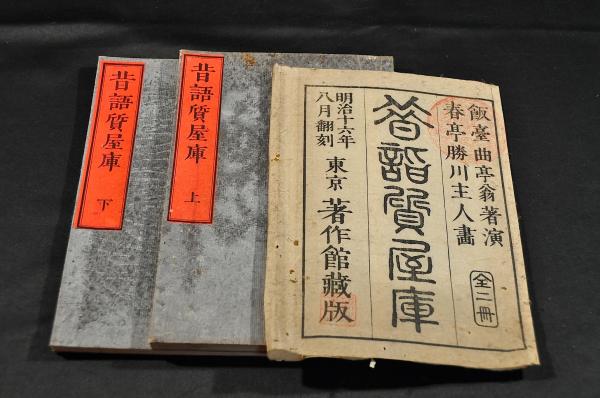 飯臺曲亭翁著演
春亭勝川主人畫
全二冊
昔語質屋庫
明治十六年
八月翻刻
東京 著作館藏版
昔語質屋庫
上
昔語質屋庫
下